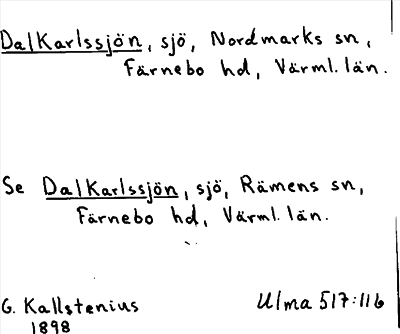 Dalkarlssjön, sjö, Nordmarks sn,
Färnebo hd, Värml. län.
Se Dalkarlssjön, sjö, Rämens sn,
Färnebo hd, Värml. län.
G. Kallstenius
Ulma 517:11b
1898